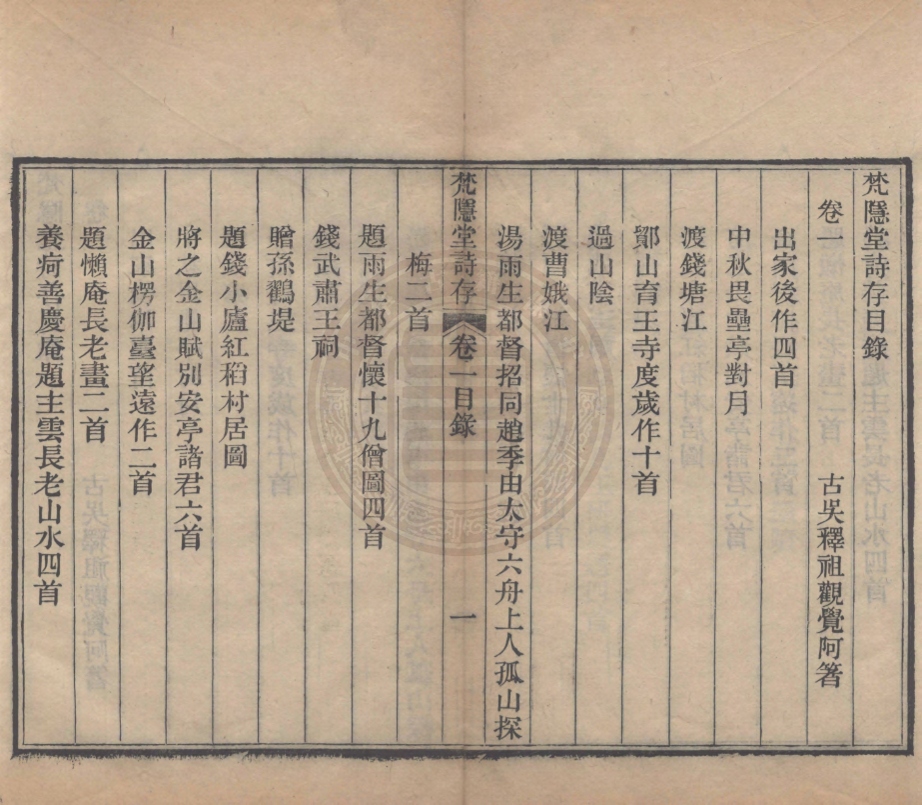 梵隱堂詩存目錄
卷一 古吳釋祖觀覺阿著
出家後作四首
中秋畏壘亭對月
渡錢塘江
鄮山育王寺度歲作十首
過山陰
渡曹娥江
湯雨生都督招同趙季由太守六舟上人孤山探
梵隱堂詩存 卷一目錄 一
梅二首
題雨生都督懷十九僧圖四首
錢武肅王祠
贈孫鶴堤
題錢小廬紅稻村居圖
將之金山賦別安亭諸君六首
金山楞伽臺望遠作二首
題懶庵長老畫二首
養疴善慶庵題主雲長老山水四首